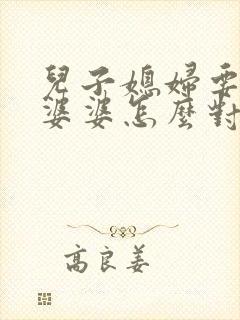 兒子媳婦要
婆婆怎麼對
高良姜